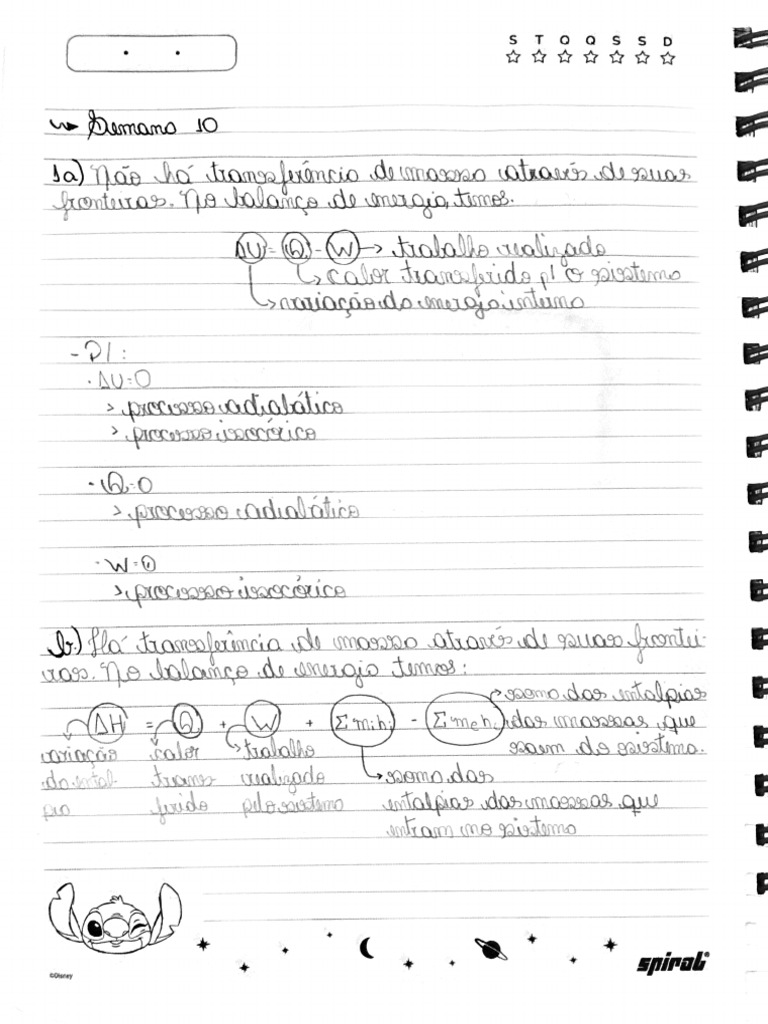 S T Q Q S S D
Semana 10
1a) Não há transferência de massa através de suas
fronteiras. No balanço de energia, temos.
ΔU = Q - W → trabalho realizado
calor transferido p/ o sistema
variação da energia interna
- P/ :
· ΔU=0
> processo adiabático
> processo isocórico
· Q=0
> processo adiabático
· W=0
> processo isocórico
b.) Há transferência de massa através de suas frontei-
ras. No balanço de energia temos:
soma das entalpias
ΔH = Q + W + Σmihi - Σmehi das massas que
variação calor trabalho saem do sistema.
da ental- trans- realizado soma das
pia ferido pelo sistema entalpias das massas que
entram no sistema
©Disney
spiral